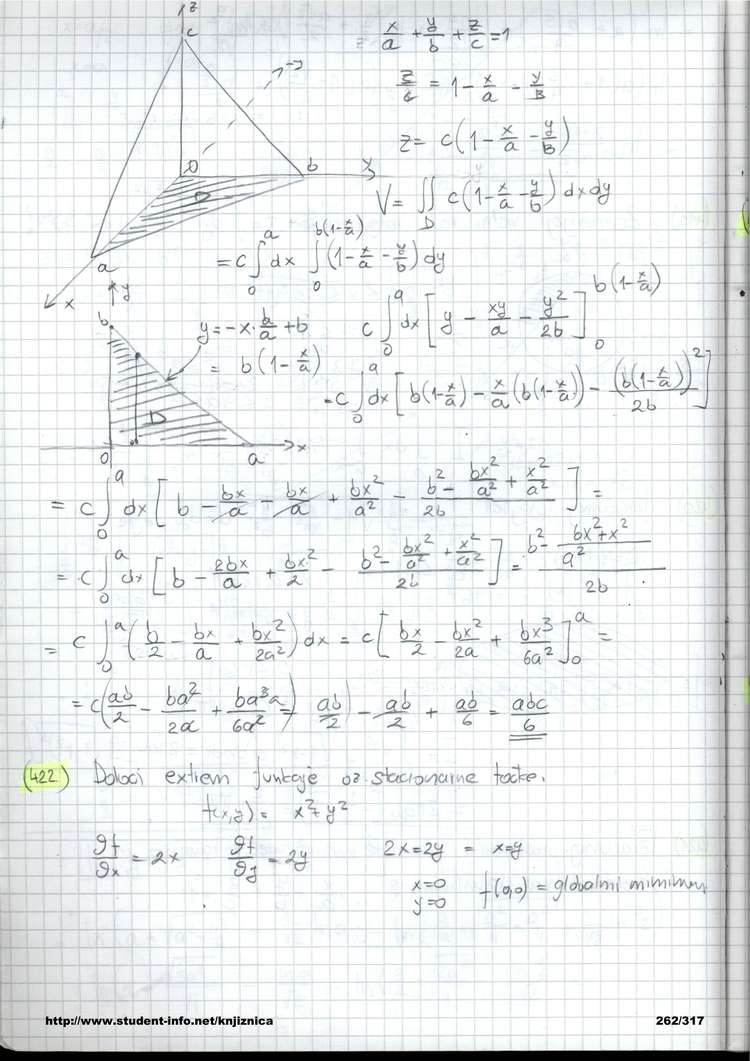 z
c
= x/a + y/b + z/c = 1
z/c = 1 - x/a - y/b
z = c(1 - x/a - y/b)
0 b y
D
V = ∬_D c(1 - x/a - y/b) dx dy
a
x
= c ∫_0^a dx ∫_0^{b(1-x/a)} (1 - x/a - y/b) dy
y
b
y = -x · b/a + b
= b(1 - x/a)
c ∫_0^a dx [y - xy/a - y²/2b]_0^{b(1-x/a)}
= c ∫_0^a dx [b(1-x/a) - x/a (b(1-x/a)) - (b(1-x/a))²/2b]
D
0 a x
= c ∫_0^a dx [b - bx/a - bx/a + bx²/a² - (b² - bx²/a² + x²/a²)/2b] =
= c ∫_0^a dx [b - 2bx/a + bx²/2 - (b² - bx²/a² + x²/a²)/2b] = (b² - (bx²+x²)/a²)/2b
= c ∫_0^a (b/2 - bx/a + bx²/2a²) dx = c [bx/2 - bx²/2a + bx³/6a²]_0^a =
= c(ab/2 - ba²/2a + ba³/6a²) = ab/2) - ab/2 + ab/6 = abc/6
(422) Določi extrem funkcije oz. stacionarne točke.
f(x,y) = x² + y²
∂f/∂x = 2x ∂f/∂y = 2y 2x=2y = x=y
x=0
y=0 f(0,0) = globalni minimum
http://www.student-info.net/knjiznica 262/317